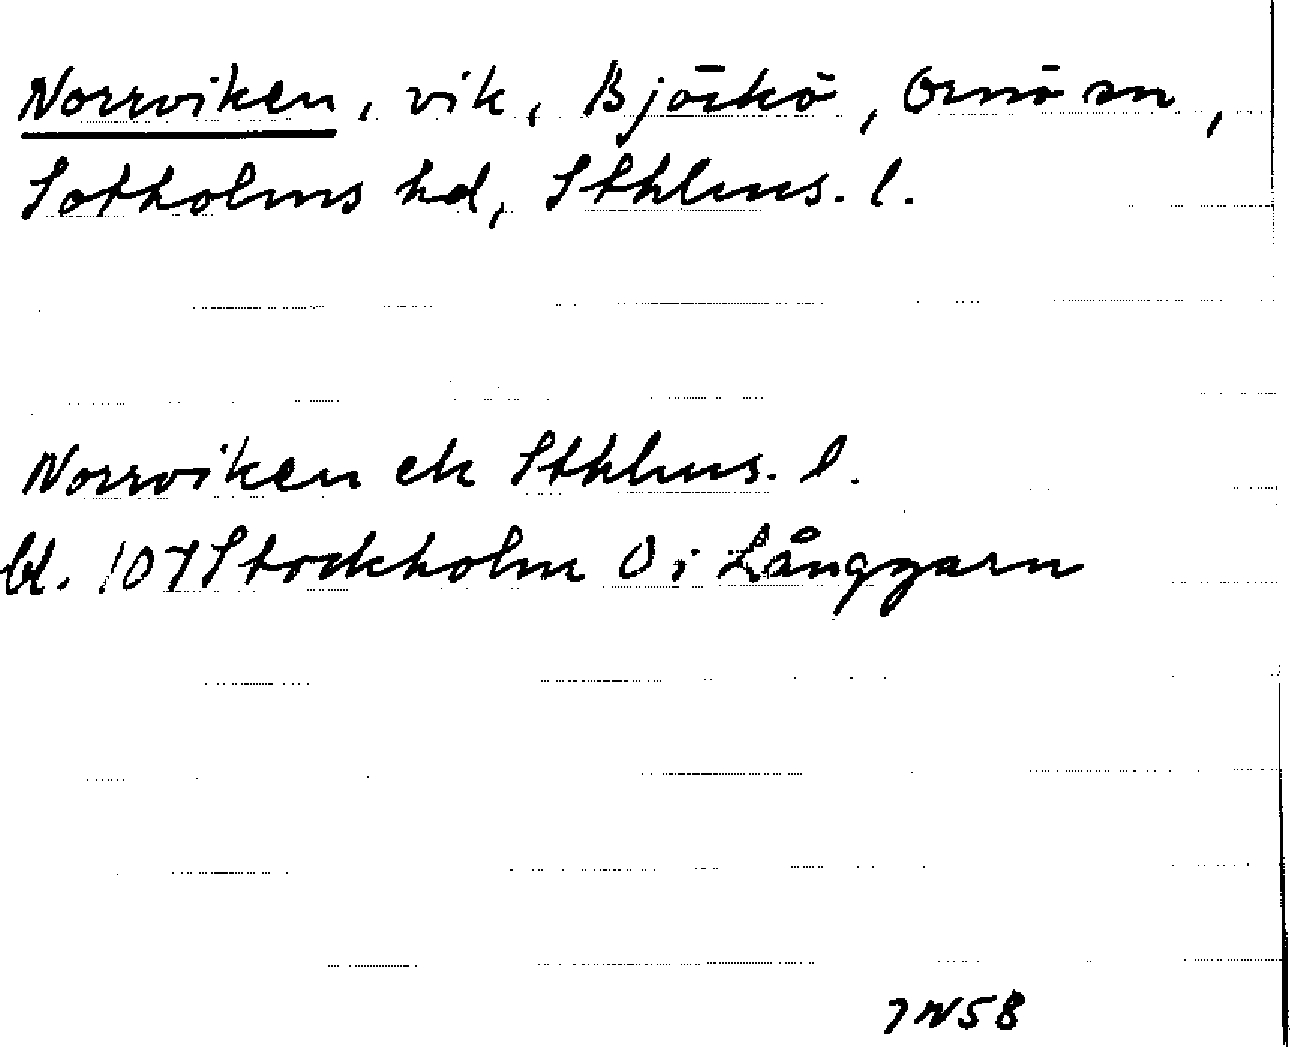 Norrviken, vik, Björkö, Ornö sn,
Sotholms hd, Sthlms. l.
Norrviken ek Sthlms. l.
bl. 107 Stockholm O i Långgarn
7N58